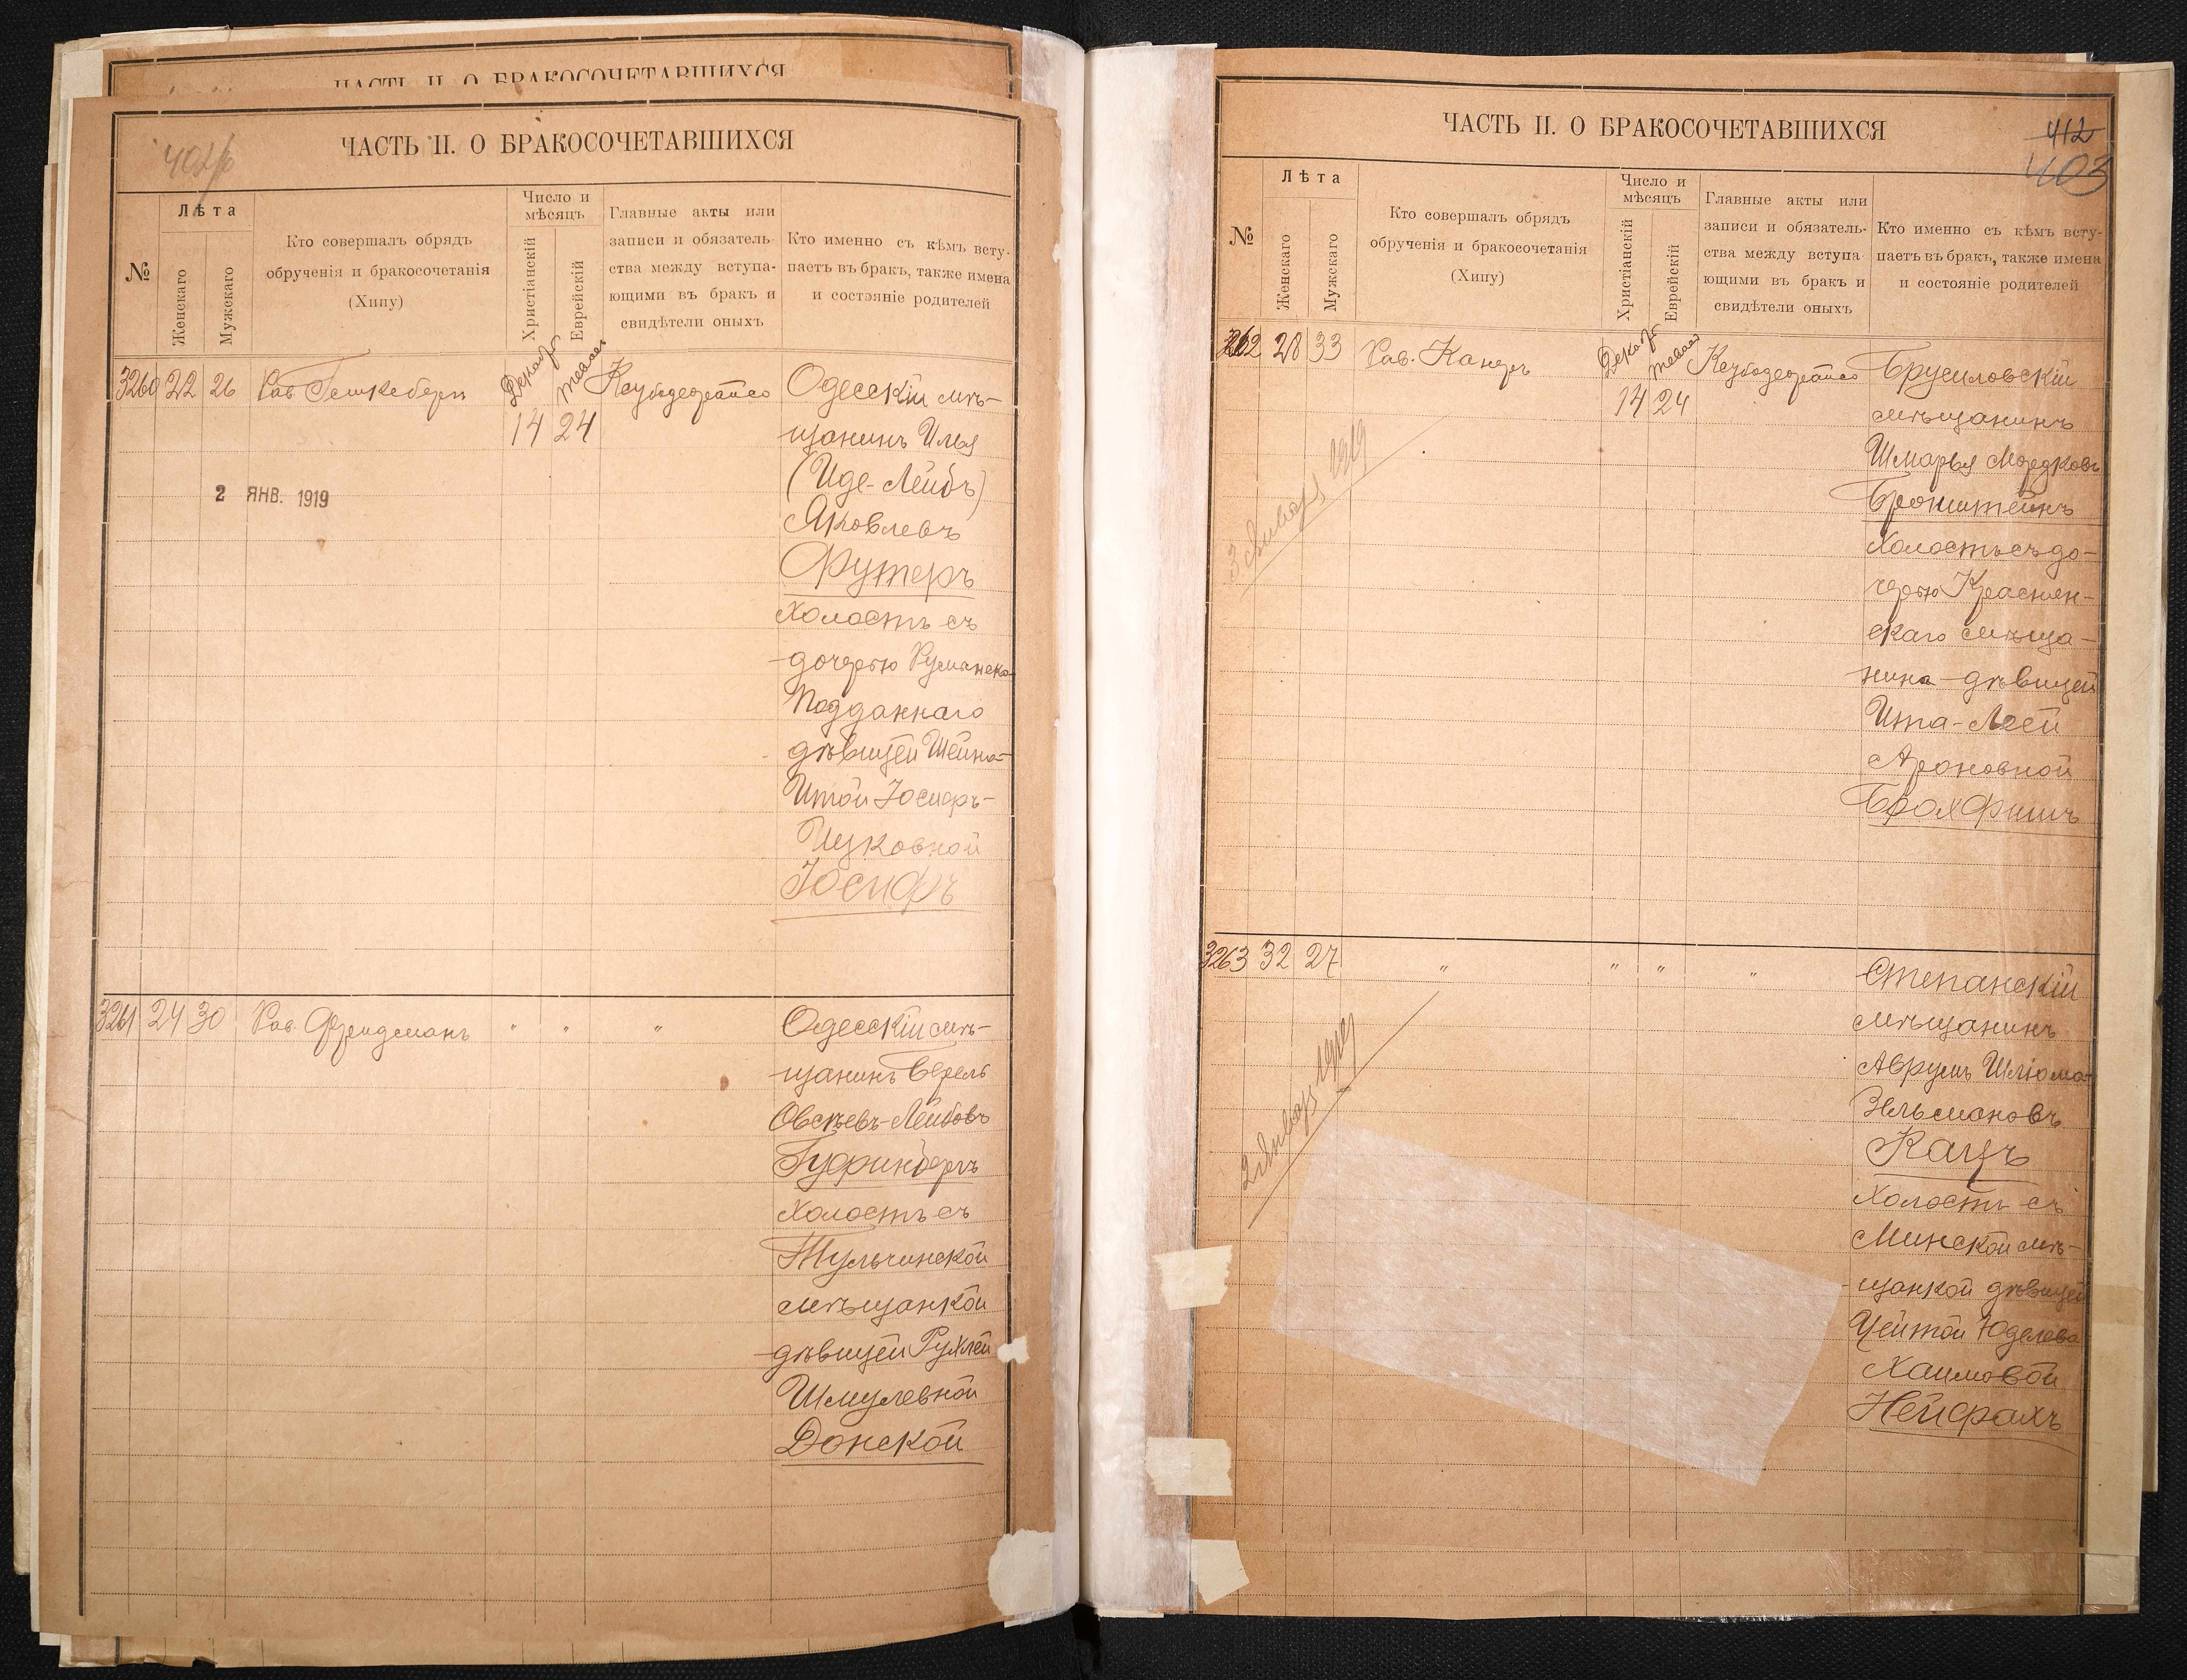 ЧАСТЬ II. О БРАКОСОЧЕТАВШИХСЯ
ЧАСТЬ II. О БРАКОСОЧЕТАВШИХСЯ
№
Лѣта
Женскаго
Мужскаго
Кто совершалъ обрядъ
обрученія и бракосочетанія
(Хипу)
Число и
мѣсяцъ
Христіанскій
Еврейскій
Главные акты или
записи и обязатель-
ства между вступа-
ющими въ бракъ и
свидѣтели оныхъ
Кто именно съ кѣмъ всту-
паетъ въ бракъ, также имена
и состояніе родителей
3260 22 26 Рав.
14 24
2 ЯНВ. 1919
Одесскій мѣ-
щанинъ Илья
(Иде-Лейбъ)
Яковлевъ
Футеръ
Холостъ съ
дочерью Румынска
Подданнаго
дѣвицей Шейна-
Итой Іосифъ-
Ицковной
Іосифъ
3261 24 30 Рав. Фридманъ " " "
Одесскій мѣ-
щанинъ Берель
Овсѣевъ-Лейбовъ
Гуфинбергъ
Холостъ съ
Тульчинской
мѣщанкой
дѣвицей Рухлей
Шмулевной
Донской
ЧАСТЬ II. О БРАКОСОЧЕТАВШИХСЯ
412
403
№
Лѣта
Женскаго
Мужскаго
Кто совершалъ обрядъ
обрученія и бракосочетанія
(Хипу)
Число и
мѣсяцъ
Христіанскій
Еврейскій
Главные акты или
записи и обязатель-
ства между вступа-
ющими въ бракъ и
свидѣтели оныхъ
Кто именно съ кѣмъ всту-
паетъ въ бракъ, также имена
и состояніе родителей
3262 28 33 Рав.
14 24
3 Января 1919
Брусиловскій
мѣщанинъ
Шмарья Мордковъ
Бронштейнъ
Холостъ съ до-
черью Краснен-
скаго мѣща-
нина дѣвицей
Ита-Леей
Ароновной
Броxфишъ
3263 32 27 " " " "
2 Января 1919
Степанскій
мѣщанинъ
Аврумъ Шліома-
Зельмановъ
Кацъ
Холостъ съ
Минской мѣ-
щанкой дѣвицей
Цейтой Юделево
Хаимовой
Нейфахъ